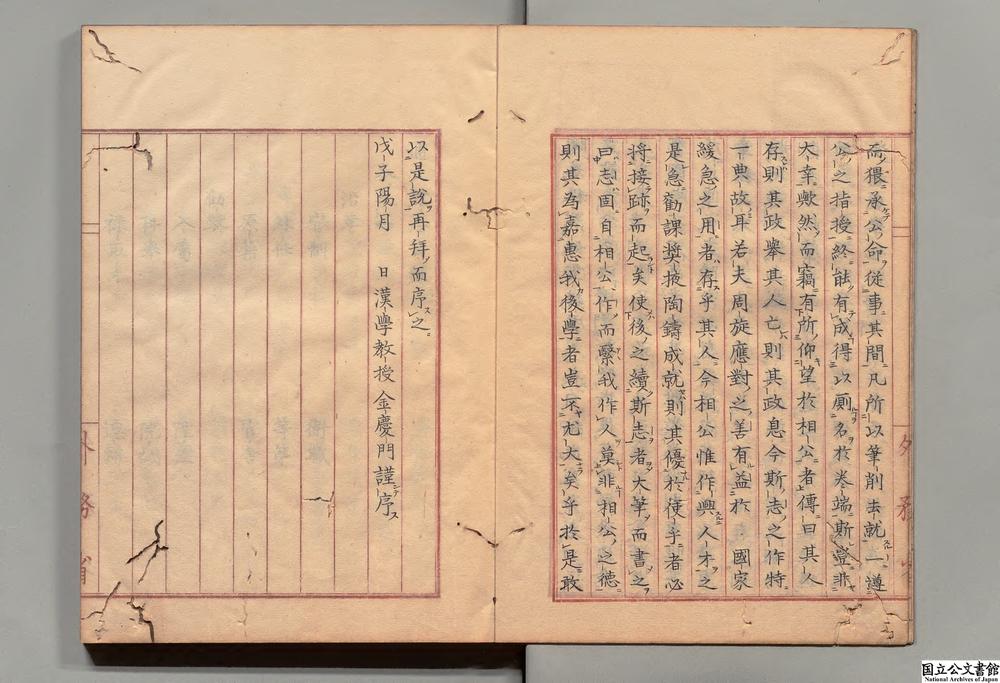 而猥承公命從事其間凡所以筆削去就一遵
公之指授終能有成得以厠名於卷端斯豈非
大幸歟然而竊有所仰望於相公者傳曰其人
存則其政擧其人亡則其政息今斯志之作特
一典故耳若夫周旋應對之善有益於 國家
緩急之用者存乎其人今相公惟作興人才之
是急勸課奬掖陶鑄成就則其優於使乎者必
將接跡而起矣使後之續斯志者大筆而書之
曰志固自相公作而繄我作人莫非相公之德
則其為嘉惠我後學者豈不尤大矣乎於是敢
以是說再拜而序之
戊子陽月 日漢學教授金慶門謹序
外務省
外務省
国立公文書館
National Archives of Japan